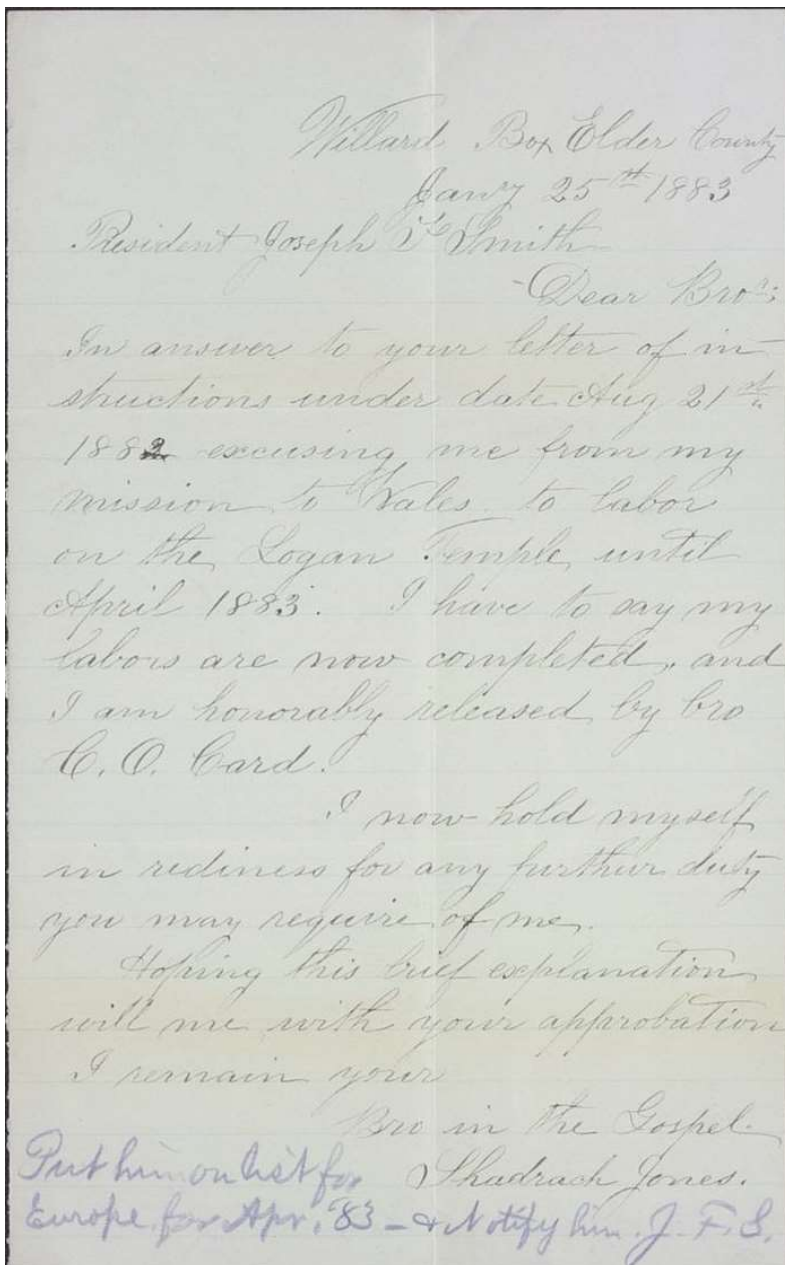 Willard Box Elder County
Jany 25th 1883
President Joseph F Smith
Dear Bro:
In answer to your letter of in-
structions under date Aug 21st
1882 excusing me from my
mission to Wales to labor
on the Logan Temple until
April 1883. I have to say my
labors are now completed, and
I am honorably released by bro
C. O. Card.
I now hold myself
in rediness for any furthur duty
you may require of me.
Hoping this brief explanation
will me with your approbation
I remain your
Bro in the Gospel.
Shadrach Jones.
Put him on list for
Europe for Apr. '83 - & Notify him. J. F. S.